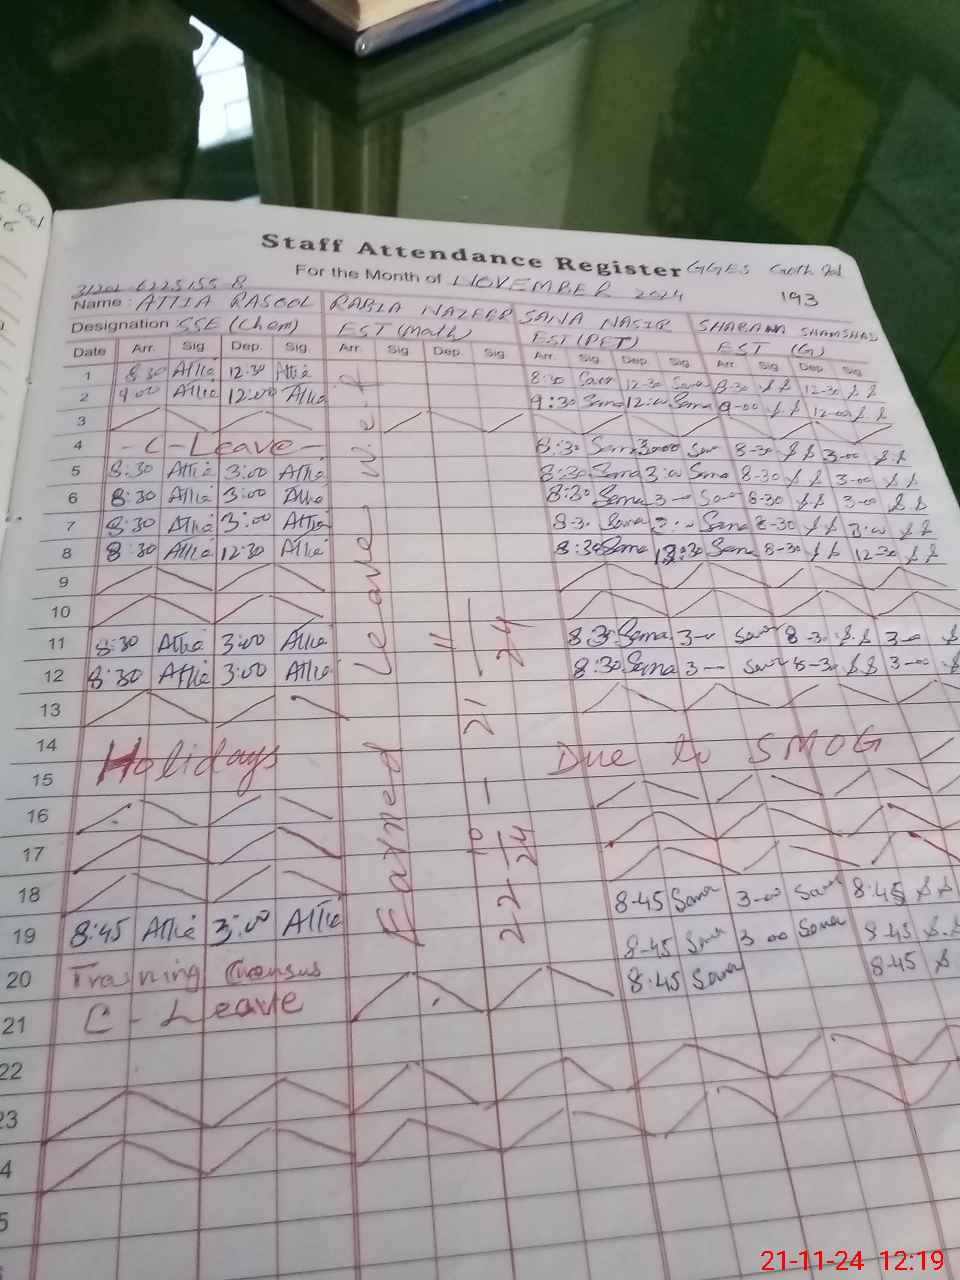 Staff Attendance Register GGES Goth
For the Month of NOVEMBER 2024 193
Name: ATTIA RASOOL RABIA NAZEER SANA NASIR SHABANA SHAMSHAD
Designation SSE (Chem) EST (Math) EST (PET) EST (G)
Date Arr. Sig Dep. Sig Arr. Sig Dep. Sig Arr. Sig Dep. Sig Arr. Sig Dep. Sig
1 8:30 Attia 12:30 Attia 8:30 Sana 12-30 Sana 8-30 12-30
2 9:00 Attia 12:00 Attia 9:30 Sana 12:00 Sana 9-00 12-00
3
4 - C - Leave - 8:30 Sana 3:00 Sana 8-30 3-00
5 8:30 Attia 3:00 Attia 8:30 Sana 3:00 Sana 8-30 3-00
6 8:30 Attia 3:00 Attia 8:30 Sana 3- Sana 8-30 3-00
7 8:30 Attia 3:00 Attia 8-30 Sana 3:- Sana 8-30 3:00
8 8:30 Attia 12:30 Attia 8:30 Sana 12:30 Sana 8-30 12-30
9
10
11 8:30 Attia 3:00 Attia 8:30 Sana 3- Sana 8-30 3-00
12 8:30 Attia 3:00 Attia 8:30 Sana 3- Sana 8-30 3-00
13
14 Holidays Due to SMOG
15
16
17
18 8-45 Sana 3-00 Sana 8:45
19 8:45 Attia 3:00 Attia 8-45 Sana 3 00 Sana 8-45
20 Training Census 8:45 Sana 8-45
21 C - Leave
22
23
4
5
Earned Leave w.e.f
22-10-24 - 21-11-24
21-11-24 12:19